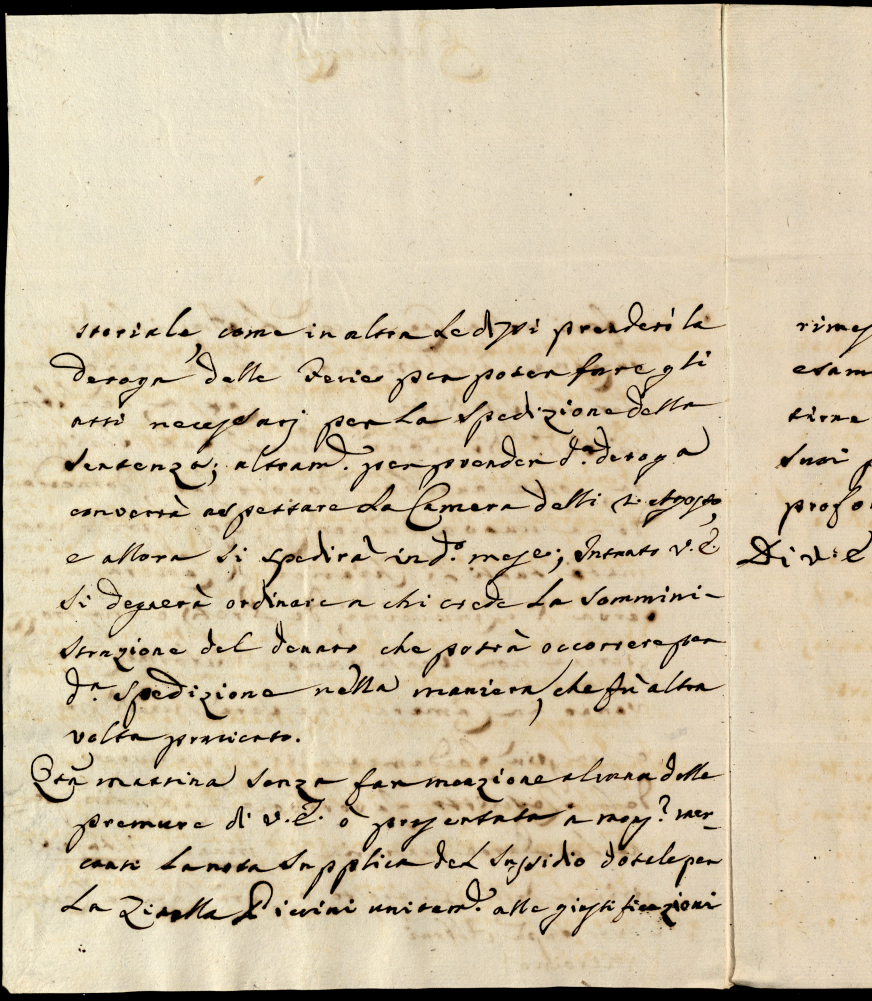 storiale, come in altra Le dissi prenderò la
deroga delle Ferie per poter fare gli
atti necessarj per La Spedizione della
Sentenza; altram.e per prender d.a deroga
converrà aspettare La Camera delli 2. Agosto,
e allora si spedirà in d.o mese; Intanto V. E.
si degnerà ordinare a chi crede La Sommini-
strazione del denaro che potrà occorrere per
d.a Spedizione nella maniera, che fù altra
volta praticato.
Q.ta mattina senza far menzione alcuna delle
premure di V. E. ò presentata a mons.r Mer-
canti La nota Supplica del Sussidio dotale per
La Zitella Pierini unitam.e alle giustificazioni
rimes
esam
suoi p
profo
Di V. E